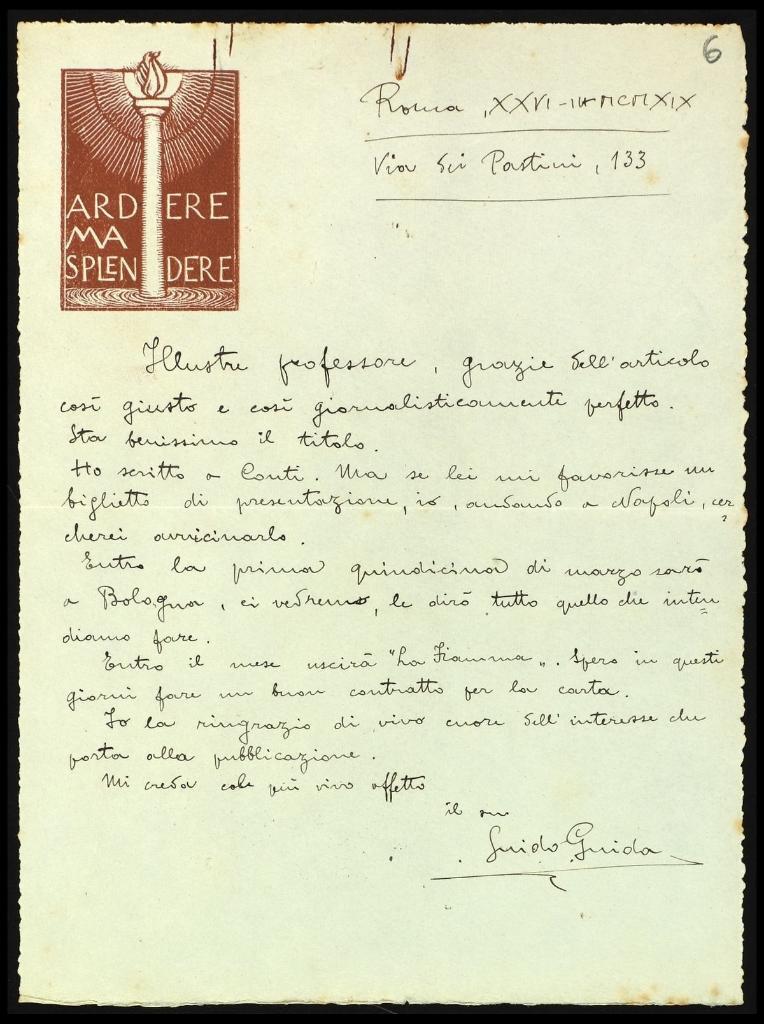 6
ARDERE
MA
SPLENDERE
Roma, XXVI-III-MCMXIX
Via dei Pastini, 133
Illustre professore, grazie dell'articolo
così giusto e così giornalisticamente perfetto.
Sta benissimo il titolo.
Ho scritto a Conti. Ma se lei mi favorisse un
biglietto di presentazione, io, andando a Napoli, cer
cherei avvicinarlo.
Entro la prima quindicina di marzo sarò
a Bologna, ci vedremo, le dirò tutto quello che inten
diamo fare.
Entro il mese uscirà "La Fiamma". Spero in questi
giorni fare un buon contratto per la carta.
Io la ringrazio di vivo cuore dell'interesse che
porta alla pubblicazione.
Mi creda col più vivo affetto
il suo
Guido Guida